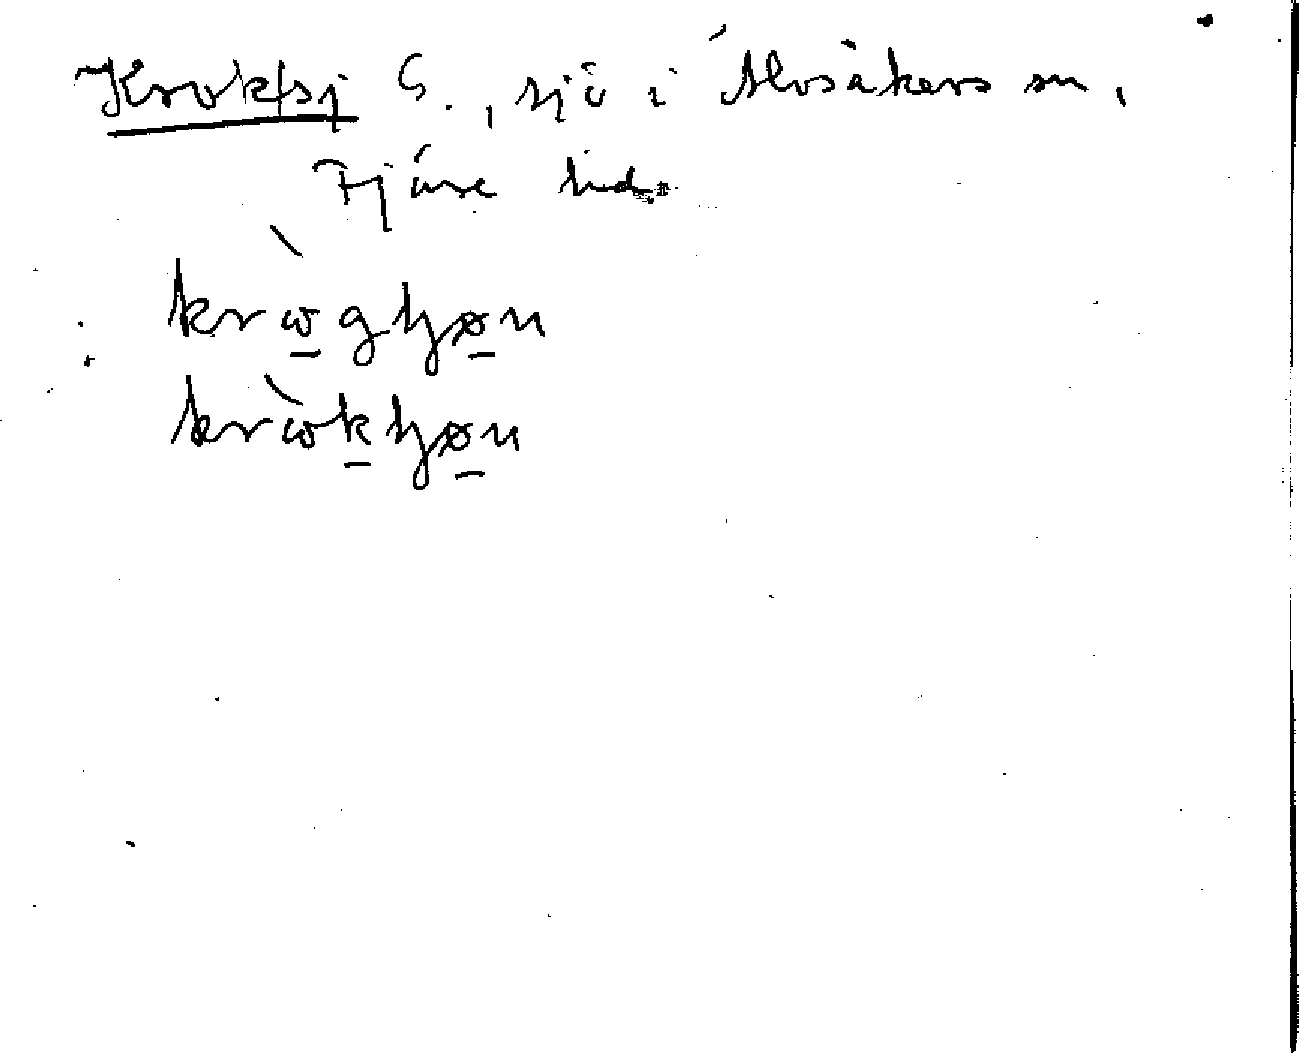 Krok/sj S., sjö i Älvsåkers sn,
Fjäre hd.
kròghjøn
kròkhjøn